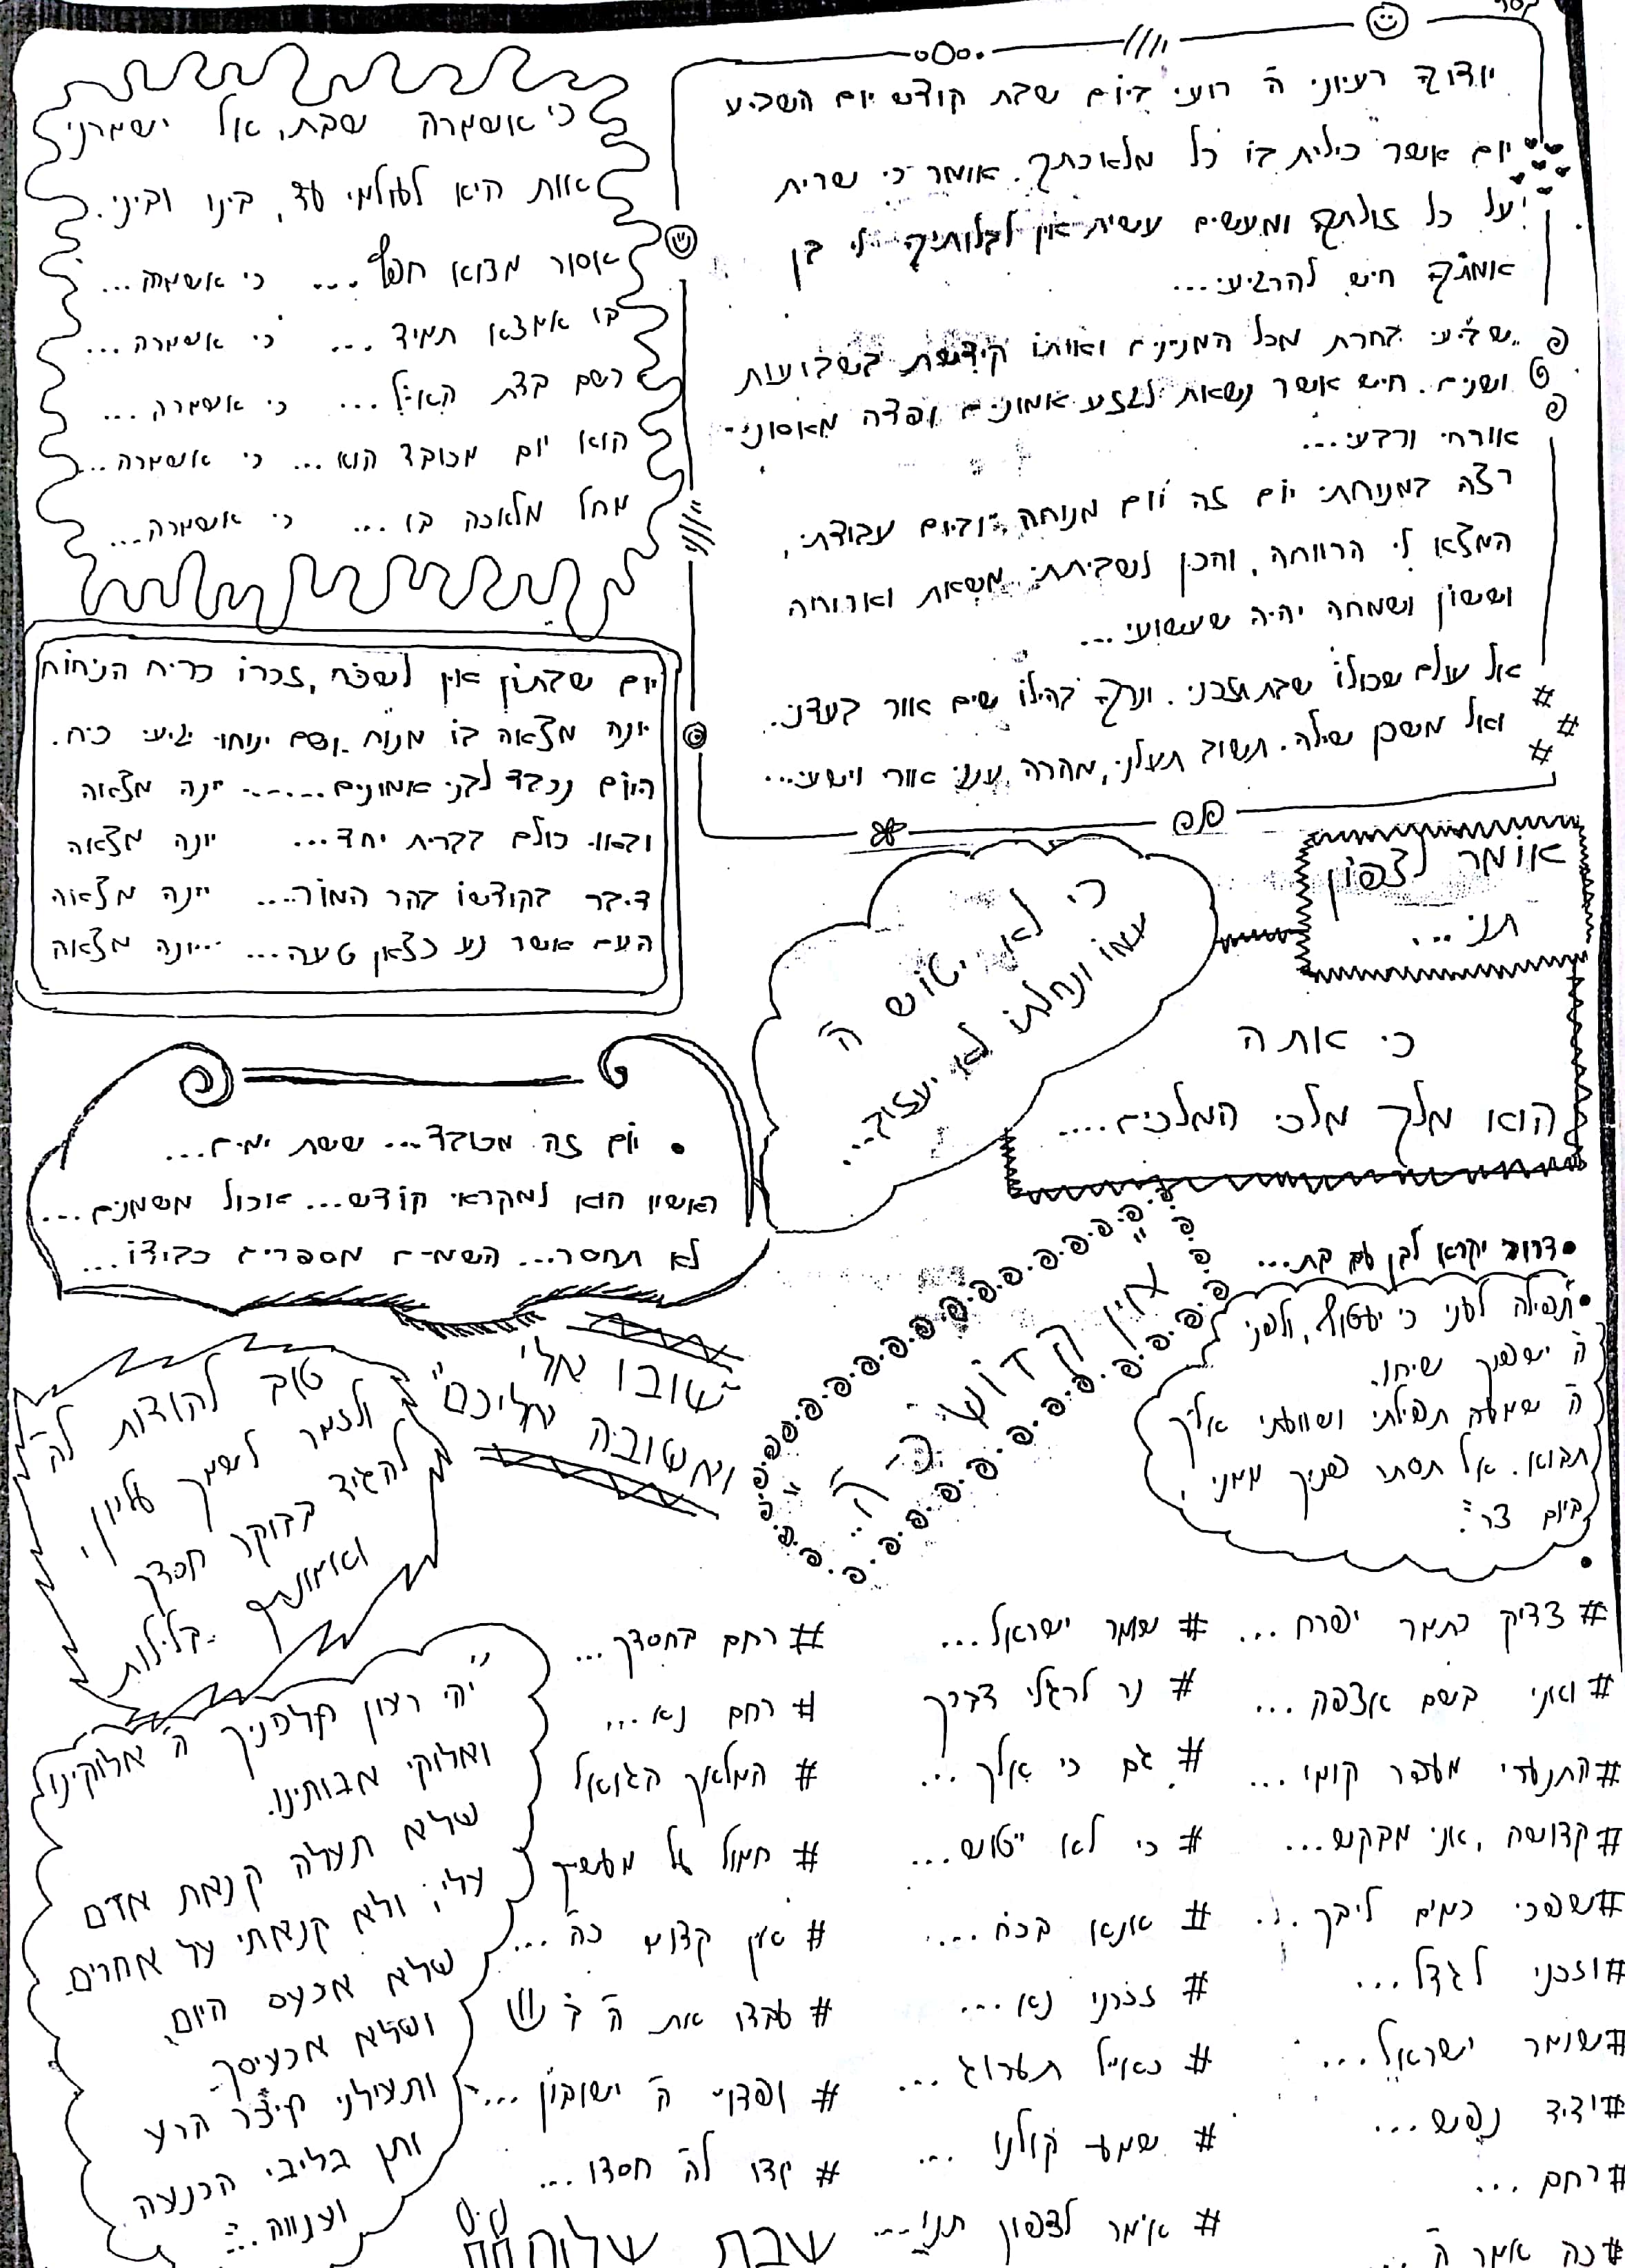 יודוך רעיוני ה' רועי ביום שבת קודש יום השביעי
יום אשר כילית בו כל מלאכתך. אומר כי שרית
על כל זולתך ומעשים עשית אין לבלותיך לי בן
אמתך חיש להרגיעי...
שביעי בחרת מכל המניינים ואותו קידשת בשבועות
ושנים. חיש אשר נשאת לגזע אמונים ופדה מאסוני
אורחי ורבעי...
רצה במנוחתי יום זה יום מנוחה, וביום עבודתי,
המצא לי הרווחה, והכן לשביתתי משאת וארוחה
וששון ושמחה יהיה שעשועי...
אל עולם שכולו שבת תזכני. ונרך בהילו שים אור בעדני.
ואל משכן שילה. תשוב תעלני, מהרה ענני אורי וישעי...
כי אשמרה שבת, אל ישמרני
אות היא לעולמי עד, בינו וביני.
אסור מצוא חפץ... כי אשמרה...
בו אמצא תמיד... כי אשמרה...
רשם בדת האל... כי אשמרה...
הוא יום מכובד הוא... כי אשמרה...
מחל מלאכה בו... כי אשמרה...
יום שבתון אין לשכח, זכרו כריח הניחוח
יונה מצאה בו מנוח ושם ינוחו יגיעי כח.
היום נכבד לבני אמונים...... יונה מצאה
ובאו כולם בברית יחד... יונה מצאה
דיבר בקודשו בהר המור.... יונה מצאה
העם אשר נע כצאן טעה... יונה מצאה
אומר לצפון
תני...
כי לא יטוש ה'
עמו ונחלתו לא יעזוב...
כי אתה
הוא מלך מלכי המלכים....
• יום זה מכובד... ששת ימים...
ראשון הוא למקראי קודש... אכול משמנים...
לא תחסר... השמים מספרים כבודו...
• דרור יקרא לבן עם בת...
• "תפילה לעני כי יעטוף, ולפני
ה' ישפוך שיחו.
ה' שמעה תפילתי ושוועתי אליך
תבוא. אל תסתר פניך ממני,
ביום צר":
"אין קדוש כ-ה'..."
"שובו אלי
ואשובה אליכם"
טוב להודות לה'
ולזמר לשמך עליון,
להגיד בבוקר חסדך
ואמונתך בלילות
# צדיק כתמר יפרח...
# ואני בשם אצפה...
# התנערי מעפר קומי...
# קדושה, אני מבקש...
# שפכי כמים ליבך...
# וזכני לגדל...
# שומר ישראל...
# ידיד נפש...
# רחם...
# כה אמר ה'...
# שומר ישראל...
# נר לרגלי דברך
# גם כי אלך...
# כי לא ייטוש...
# אנא בכח....
# זכרני נא...
# כאייל תערוג...
# שמע קולנו...
# אומר לצפון תני....
# רחם בחסדך...
# רחם נא...
# המלאך הגואל
# חמול על מעשיך
# אין קדוש כה'...
# עבדו את ה' ב
# ופדויי ה' ישובון...
# קדו לה' חסדו...
"יהי רצון מלפניך ה' אלוקינו
ואלוקי אבותינו.
שלא תעלה קנאת אדם
עלי, ולא קנאתי על אחרים.
שלא אכעס היום,
ושלא אכעיסך
ותצילני מיצר הרע
ותן בליבי הכנעה
וענווה..."
שבת שלום!!!